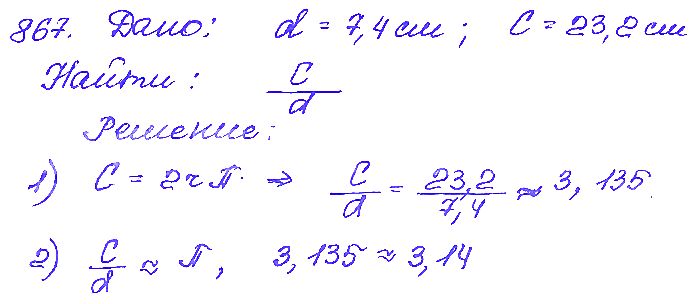 867. Дано: d = 7,4 см; C = 23,2 см
Найти: C/d
Решение:
1) C = 2rπ ⇒ C/d = 23,2/7,4 ≈ 3,135
2) C/d ≈ π, 3,135 ≈ 3,14